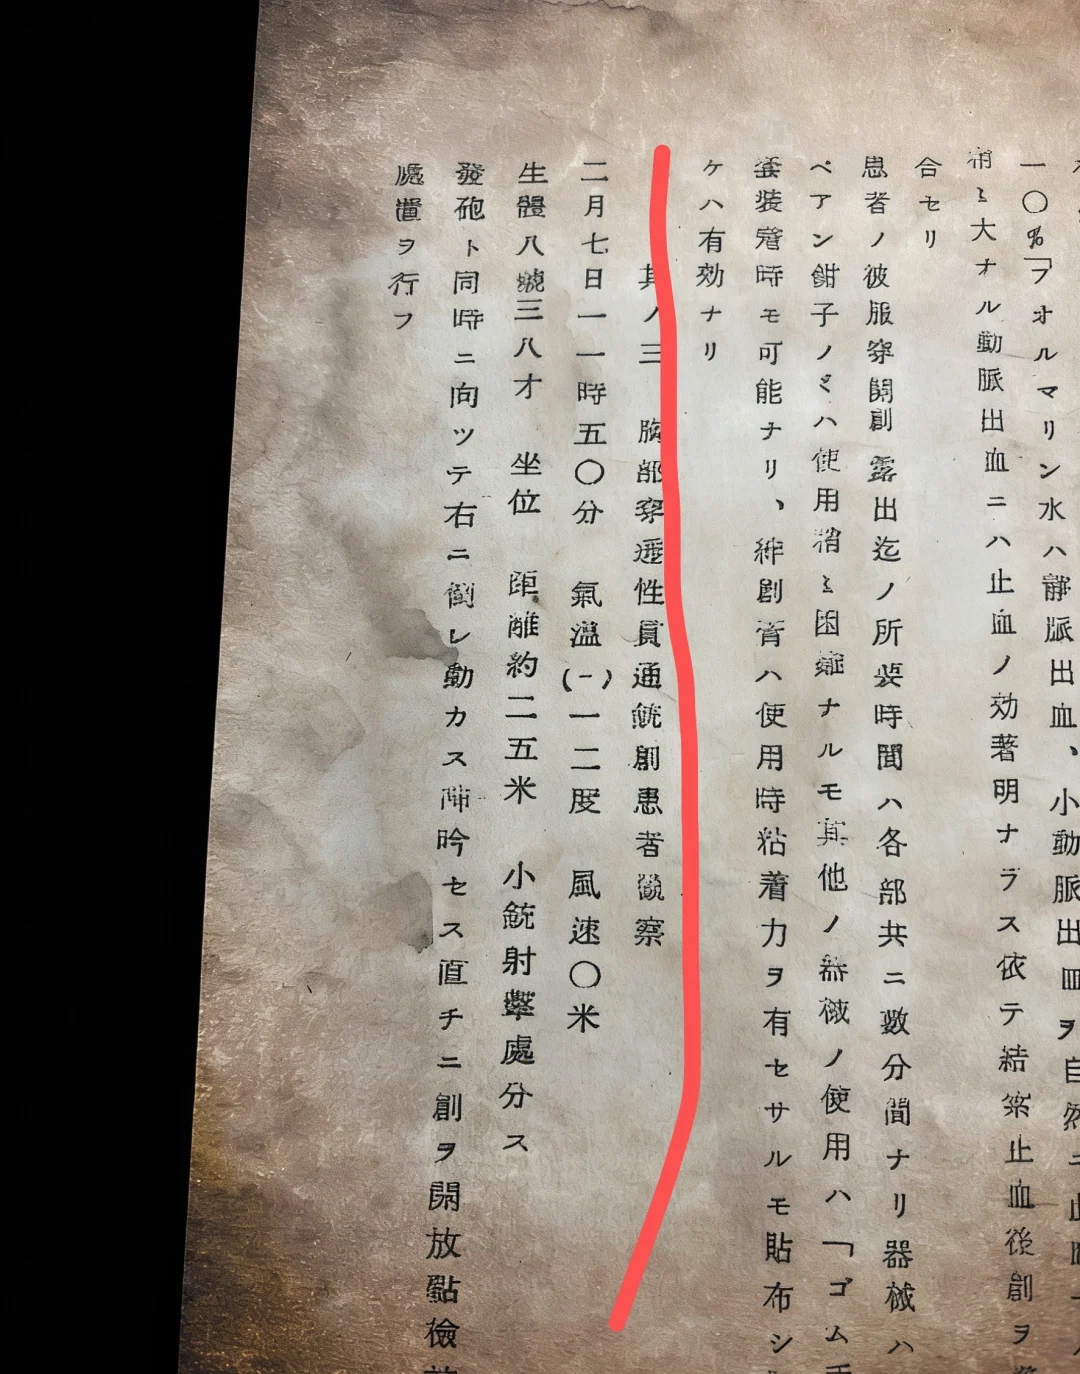 一〇%「フオルマリン水ハ靜脈出血、小動脈出血ヲ自然ニ止
稍〻大ナル動脈出血ニハ止血ノ効著明ナラス依テ結紮止血後創ヲ
合セリ
患者ノ彼服穿開創露出迄ノ所要時間ハ各部共ニ數分間ナリ器械ハ
ペアン鉗子ノミハ使用稍〻困難ナルモ其他ノ器械ノ使用ハ「ゴム手
套装着時モ可能ナリ、絆創膏ハ使用時粘着力ヲ有セサルモ貼布シ
ケハ有効ナリ
其ノ三 胸部穿透性貫通銃創患者觀察
二月七日一一時五〇分 氣溫(-)一二度 風速〇米
生體八號三八才 坐位 距離約二五米 小銃射擊處分ス
發砲ト同時ニ向ツテ右ニ倒レ動カス呻吟セス直チニ創ヲ開放點儉
處置ヲ行フ